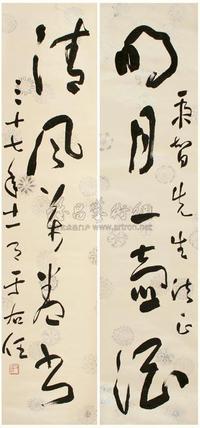 明月一壶酒
秉智先生法正
清风万卷书
三十七年十一月于右任
www.artron.net